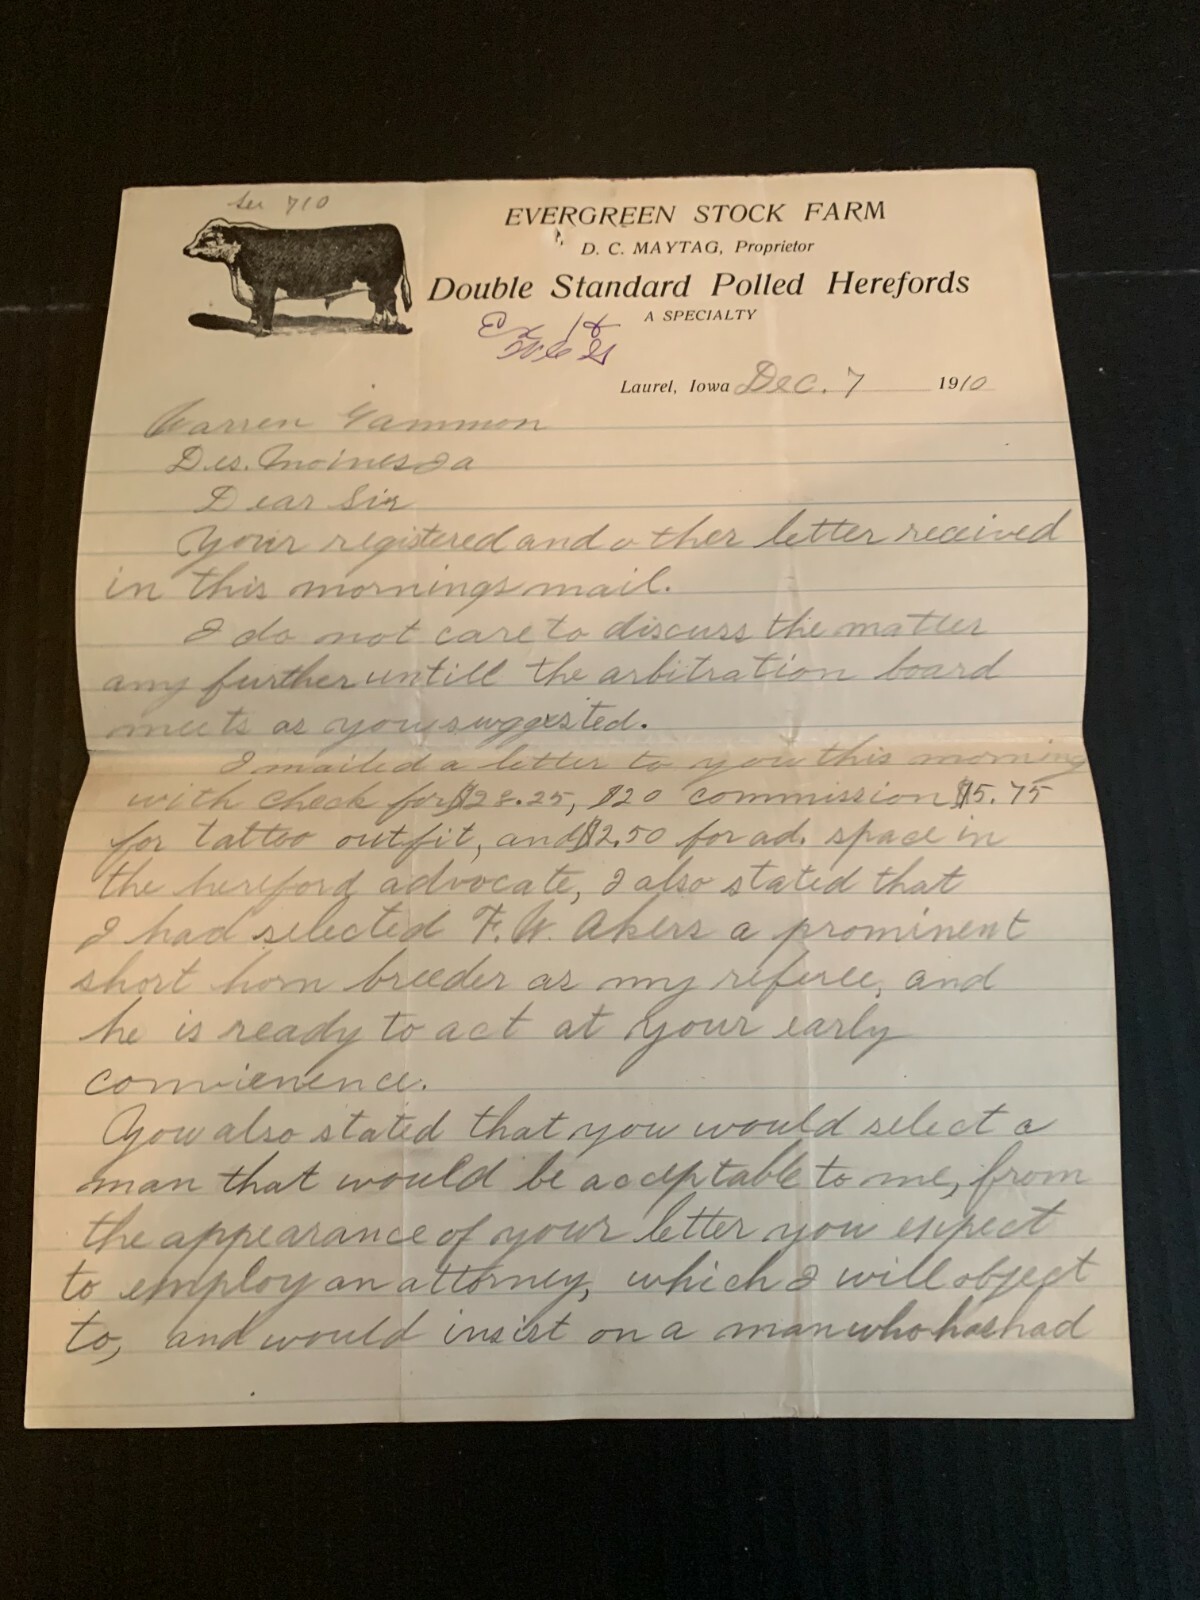 710
EVERGREEN STOCK FARM
D. C. MAYTAG, Proprietor
Double Standard Polled Herefords
A SPECIALTY
Ex
Laurel, Iowa Dec. 7 1910
Warren Gammon
Des. Moines Ia
Dear Sir
Your registered and other letter received
in this mornings mail.
I do not care to discuss the matter
any further untill the arbitration board
meets as you suggested.
I mailed a letter to you this morning
with check for $28.25, $20 commission $5.75
for tattoo outfit, and $2.50 for ad. space in
the hereford advocate, I also stated that
I had selected F. W. Akers a prominent
short horn breeder as my referee, and
he is ready to act at your early
convienence.
You also stated that you would select a
man that would be acceptable to me, from
the appearance of your letter you expect
to employ an attorney, which I will object
to, and would insist on a man who has had